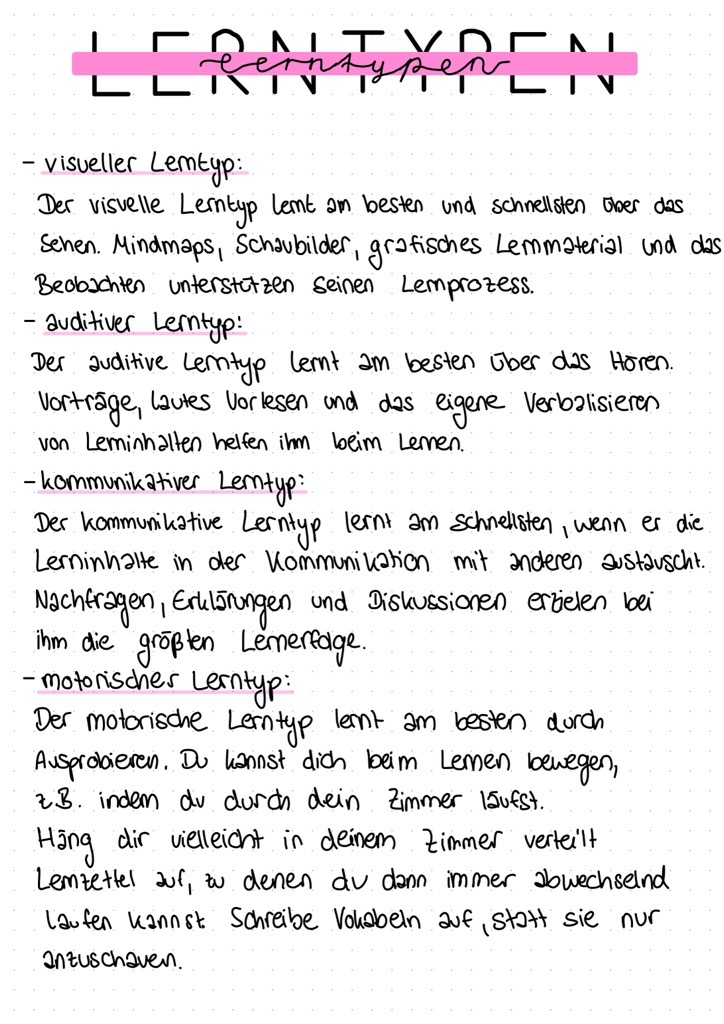 LERNTYPEN
Lerntypen
- visueller Lerntyp:
Der visuelle Lerntyp lernt am besten und schnellsten über das
Sehen. Mindmaps, Schaubilder, grafisches Lernmaterial und das
Beobachten unterstützen seinen Lernprozess.
- auditiver Lerntyp:
Der auditive Lerntyp lernt am besten über das Hören.
Vorträge, lautes Vorlesen und das eigene Verbalisieren
von Lerninhalten helfen ihm beim Lernen.
- kommunikativer Lerntyp:
Der kommunikative Lerntyp lernt am schnellsten, wenn er die
Lerninhalte in der Kommunikation mit anderen austauscht.
Nachfragen, Erklärungen und Diskussionen erzielen bei
ihm die größten Lernerfolge.
- motorischer Lerntyp:
Der motorische Lerntyp lernt am besten durch
Ausprobieren. Du kannst dich beim Lernen bewegen,
z.B. indem du durch dein Zimmer läufst.
Häng dir vielleicht in deinem Zimmer verteilt
Lernzettel auf, zu denen du dann immer abwechselnd
laufen kannst. Schreibe Vokabeln auf, statt sie nur
anzuschauen.